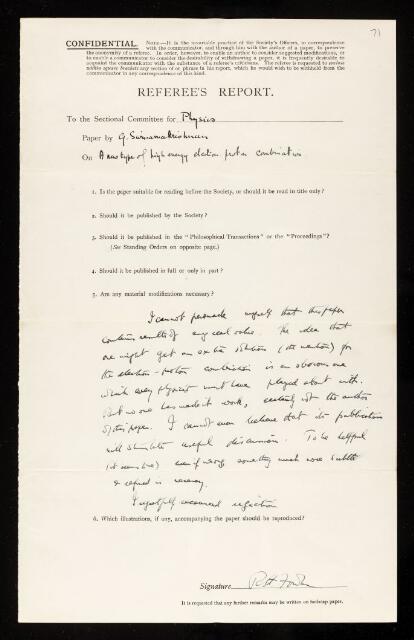 71
CONFIDENTIAL. NOTE—It is the invariable practice of the Society's Officers, in correspondence
with the communicator, and through him with the author of a paper, to preserve
the anonymity of a referee. In order, however, to enable an author to consider suggested modifications, or
to enable a communicator to consider the desirability of withdrawing a paper, it is frequently desirable to
acquaint the communicator with the substance of a referee's criticisms. The referee is requested to
any section of or phrase in his report, which he would wish to be withheld from the
communicator in any correspondence of this kind.
REFEREE'S REPORT.
To the Sectional Committee for Physics
Paper by G.
On A new type of high energy electron proton combination
1. Is the paper suitable for reading before the Society, or should it be read in title only?
2. Should it be published by the Society?
3. Should it be published in the "Philosophical Transactions" or the "Proceedings"?
(See Standing Orders on opposite page.)
4. Should it be published in full or only in part?
5. Are any material modifications necessary?
I cannot persuade myself that this paper
contains results of any real value. The idea that
one might get an extra solution (the neutron) for
the electron-proton combination is an obvious one
which every physicist must have played about with.
But no one has made it work, certainly not the author
of this paper. I cannot even believe that its publication
will stimulate useful discussion. To be helpful
even if wrong something much more subtle
& refined is necessary.
I regretfully recommend rejection
6. Which illustrations, if any, accompanying the paper should be reproduced?
Signature R H Fowler
It is requested that any further remarks may be written on foolscap paper.